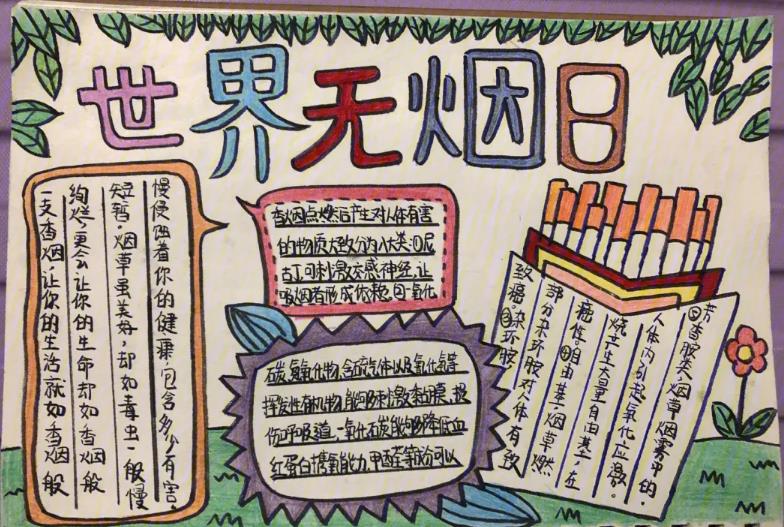 世界无烟日
一支香烟,让你的生活就如香烟般
绚烂,更会让你的生命却如香烟般
短暂。烟草虽美好,却如毒虫一般慢
慢侵蚀着你的健康,包含多少有害。
香烟点燃后产生对人体有害
的物质大致分为八大类:①尼
古丁,可刺激交感神经,让
吸烟者形成依赖。②氧化
碳,氮氧化物,含硫气体以及氰化氢等
挥发性有机物,能够刺激黏膜,损
伤呼吸道。一氧化碳能够降低血
红蛋白携氧能力,甲醛可以
致癌。③杂环胺
部分杂环胺对人体有致
癌性。④自由基:烟草燃
烧产生大量自由基,在
人体内引起氧化应激。
⑤芳香胺类:烟草烟雾中的